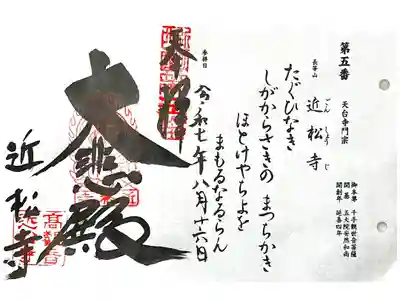 第五番
天台寺門宗
御本尊 千手観世音菩薩
開基 五大院安然和尚
開創年 延喜四年
長等山
近松寺
ごんしょうじ
たぐひなき
しがからさきの まつちかき
ほとけやちよを
まもるなるらん
参拝日
令和七年八月廿六日
奉拝
大悲殿
近松寺